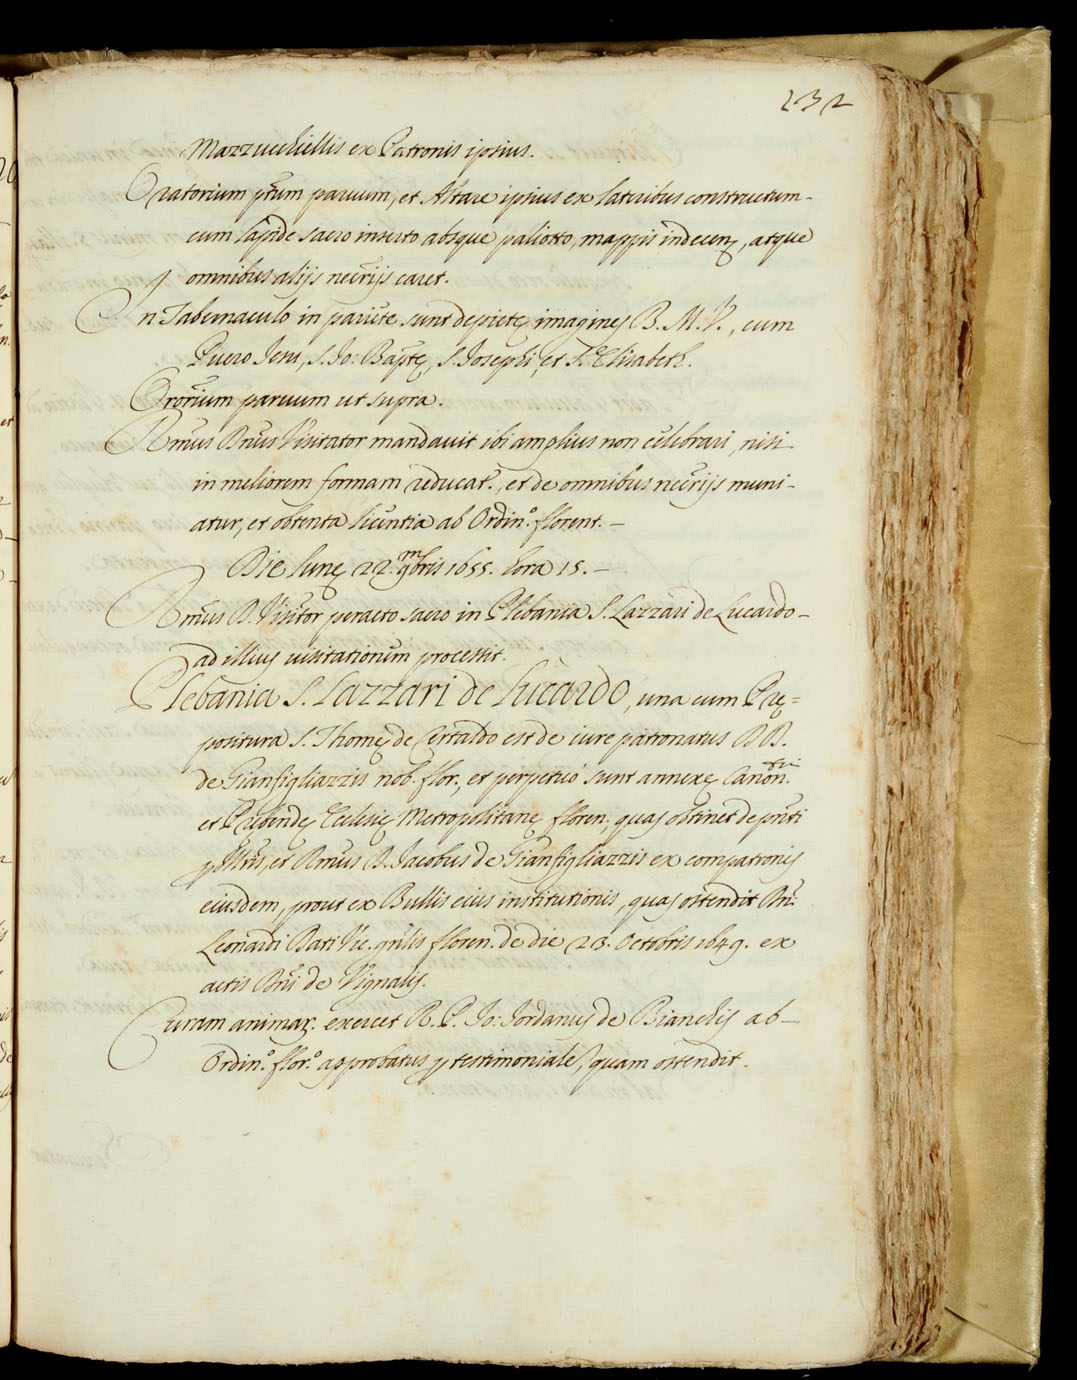 232
Mazzucchiellis ex Patronis ipsius.
Oratorium p̃tum paruum, et Altare ipsius ex lateribus constructum
cum lapide sacro inserto absque paliotto, mappis indecenę, atque
omnibus alijs nec̃rijs caret.
In Tabernaculo in pariete sunt depictę imagines B. M. V., cum
Puero Jesu, S. Jo: Bap̃tę, S. Josephi, et S. Elisabeth.
Ororium paruum ut supra.
Rm̃us Dñus Visitator mandauit ibi amplius non celebrari, nisi
in meliorem formam reducat., et de omnibus nec̃rijs muni-
atur, et obtenta licentia ab Ordin.º florent. –
Die Lunę 22. mensis 9bris 1655. hora 15. –
Rm̃us D. Visitor peracto sacro in Plebania S. Lazzari de Lucardo –
ad illius uisitationem processit.
Plebania S. Lazzari de Lucardo, una cum Pre=
positura S. Thomę de Certaldo est de iure patronatus DD.
de Gianfigliazzis nob. flor., et perpetuo sunt annexę Canon.tui
et Prebendę Eclesię Metropolitanę floren. quas obtinet de pñti
p Illris, et Rmũs D. Jacobus de Gianfigliazzis ex compatronis
eiusdem, prout ex Bullis eius institutionis, quas ostendit
Leonardi Dati Vic. gñlis floren. de die 23. Octobris 1649. ex
actis de Vignalis.
Curam animar. exercet R. P. Jo: Jordanus de Bianchis ab –
Ordin.º flor.º approbatus p testimoniales, quam ostendit.